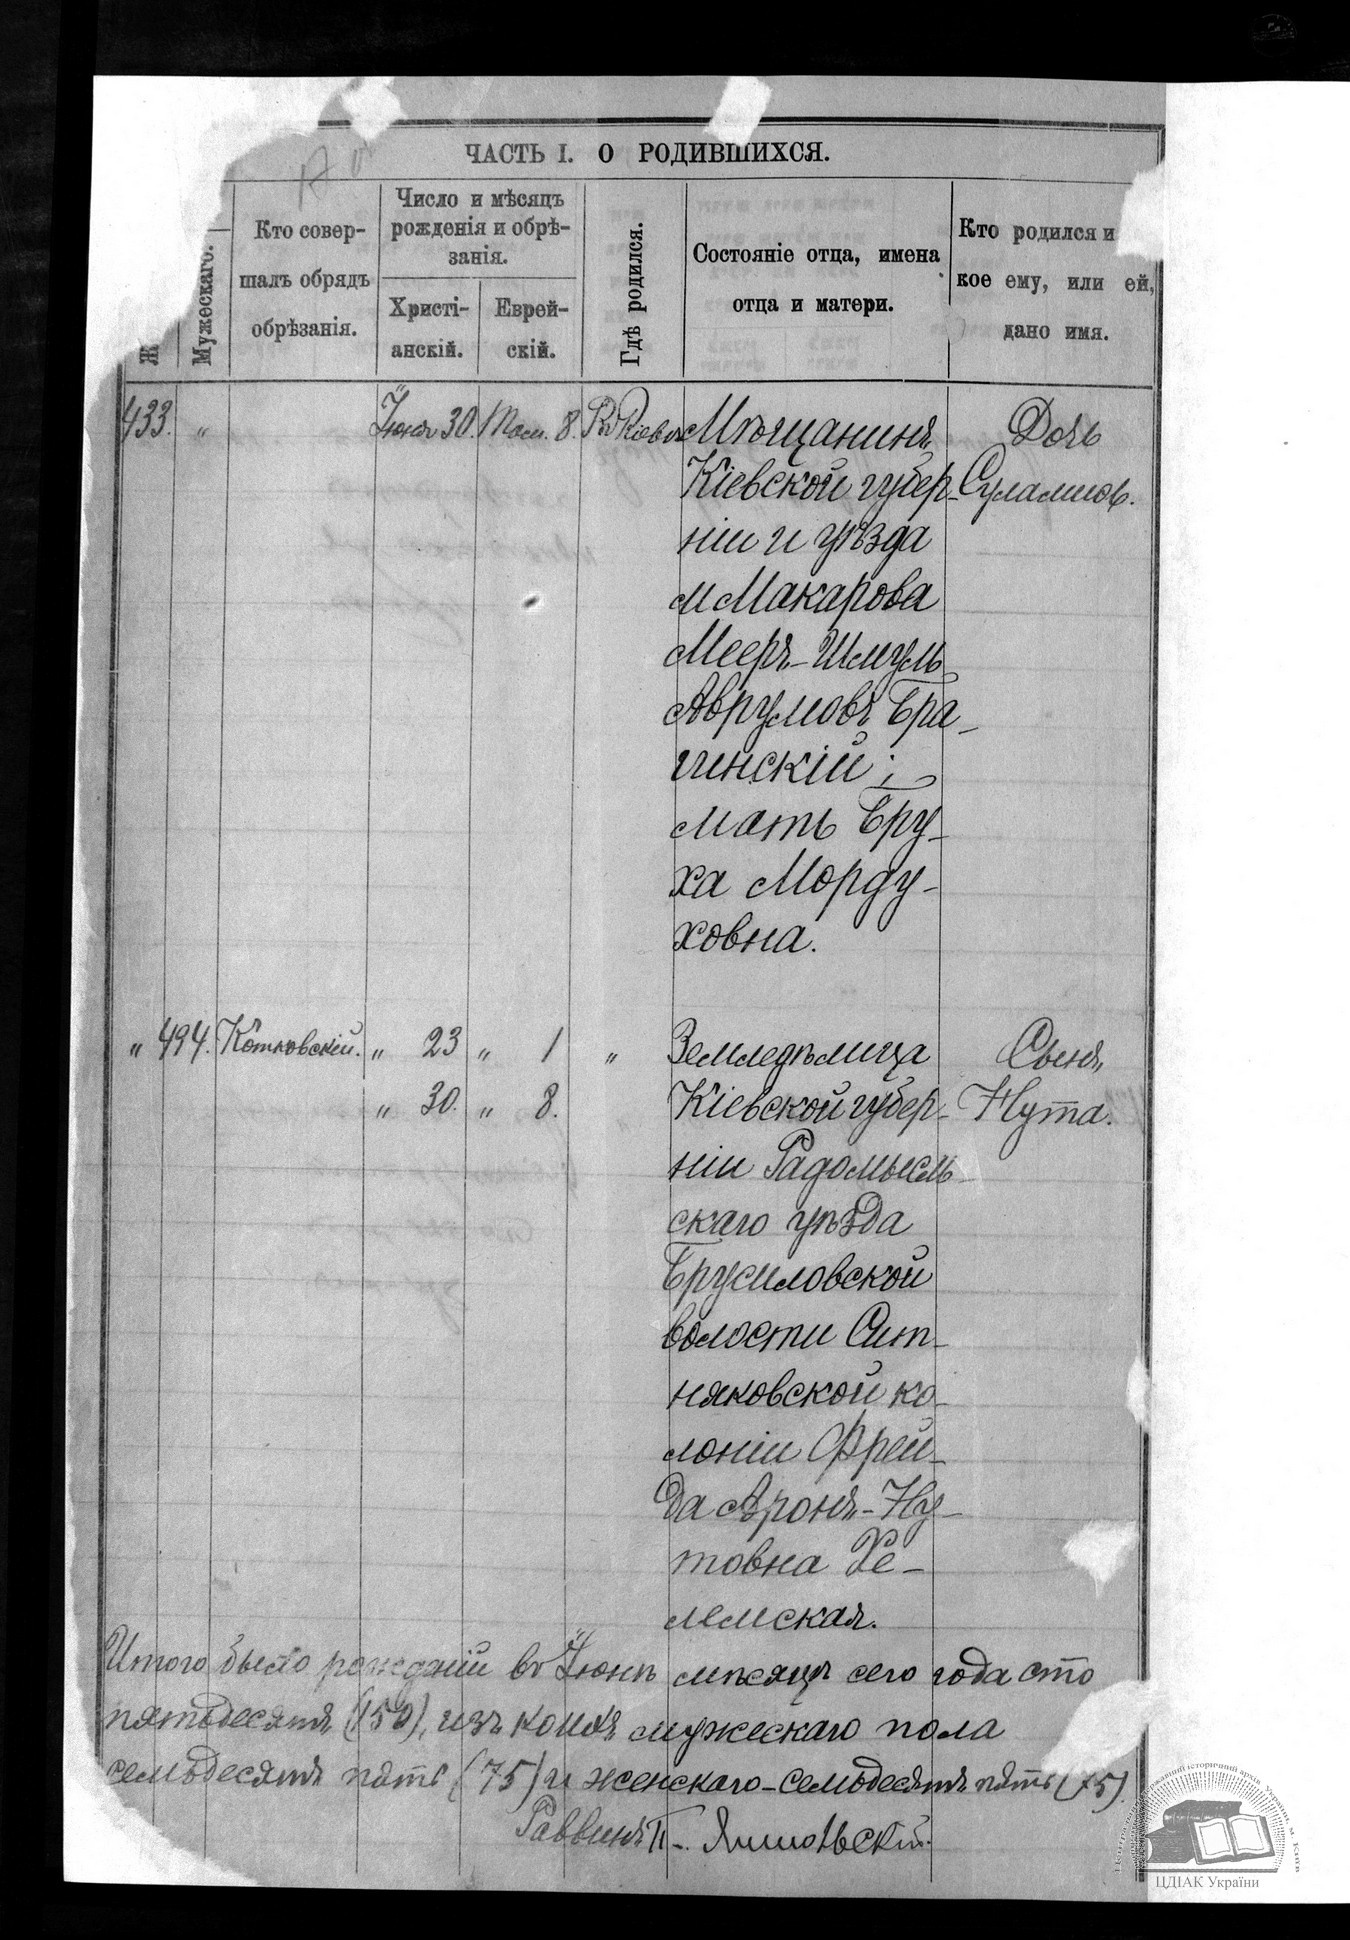 ЧАСТЬ I. О РОДИВШИХСЯ.
Мужескаго.
Кто совер-
шалъ обрядъ
обрѣзанія.
Число и мѣсяцъ
рожденія и обрѣ-
занія.
Христі-
анскій.
Еврей-
скій.
Гдѣ родился.
Состояніе отца, имена
отца и матери.
Кто родился и
кое ему, или ей,
дано имя.
433. " Іюня 30. Там. 8. Въ Кіевѣ Мѣщанинъ Дочь
Кіевской губер- Суламиѳь.
ніи и уѣзда
м Макарова
Мееръ-Шмуль
Аврумовъ Бра-
гинскій;
мать Бру-
ха Морду-
ховна.
" 494. Котковскій. " 23 " 1 " Земледѣлица Сынъ
" 30. " 8. Кіевской губер- Нута.
ніи Радомысль-
скаго уѣзда
Брусиловской
волости Сит-
няковской ко-
лоніи Фрей-
да Аронъ-Ну-
товна Хе-
лемская.
Итого было рожденій въ Іюнѣ мѣсяцѣ сего года сто
пятьдесятъ (150), изъ коихъ мужескаго пола
семьдесятъ пять (75) и женскаго-семьдесятъ пять (75).
Раввинъ П. Ямпольскій.
ЦДІАК України